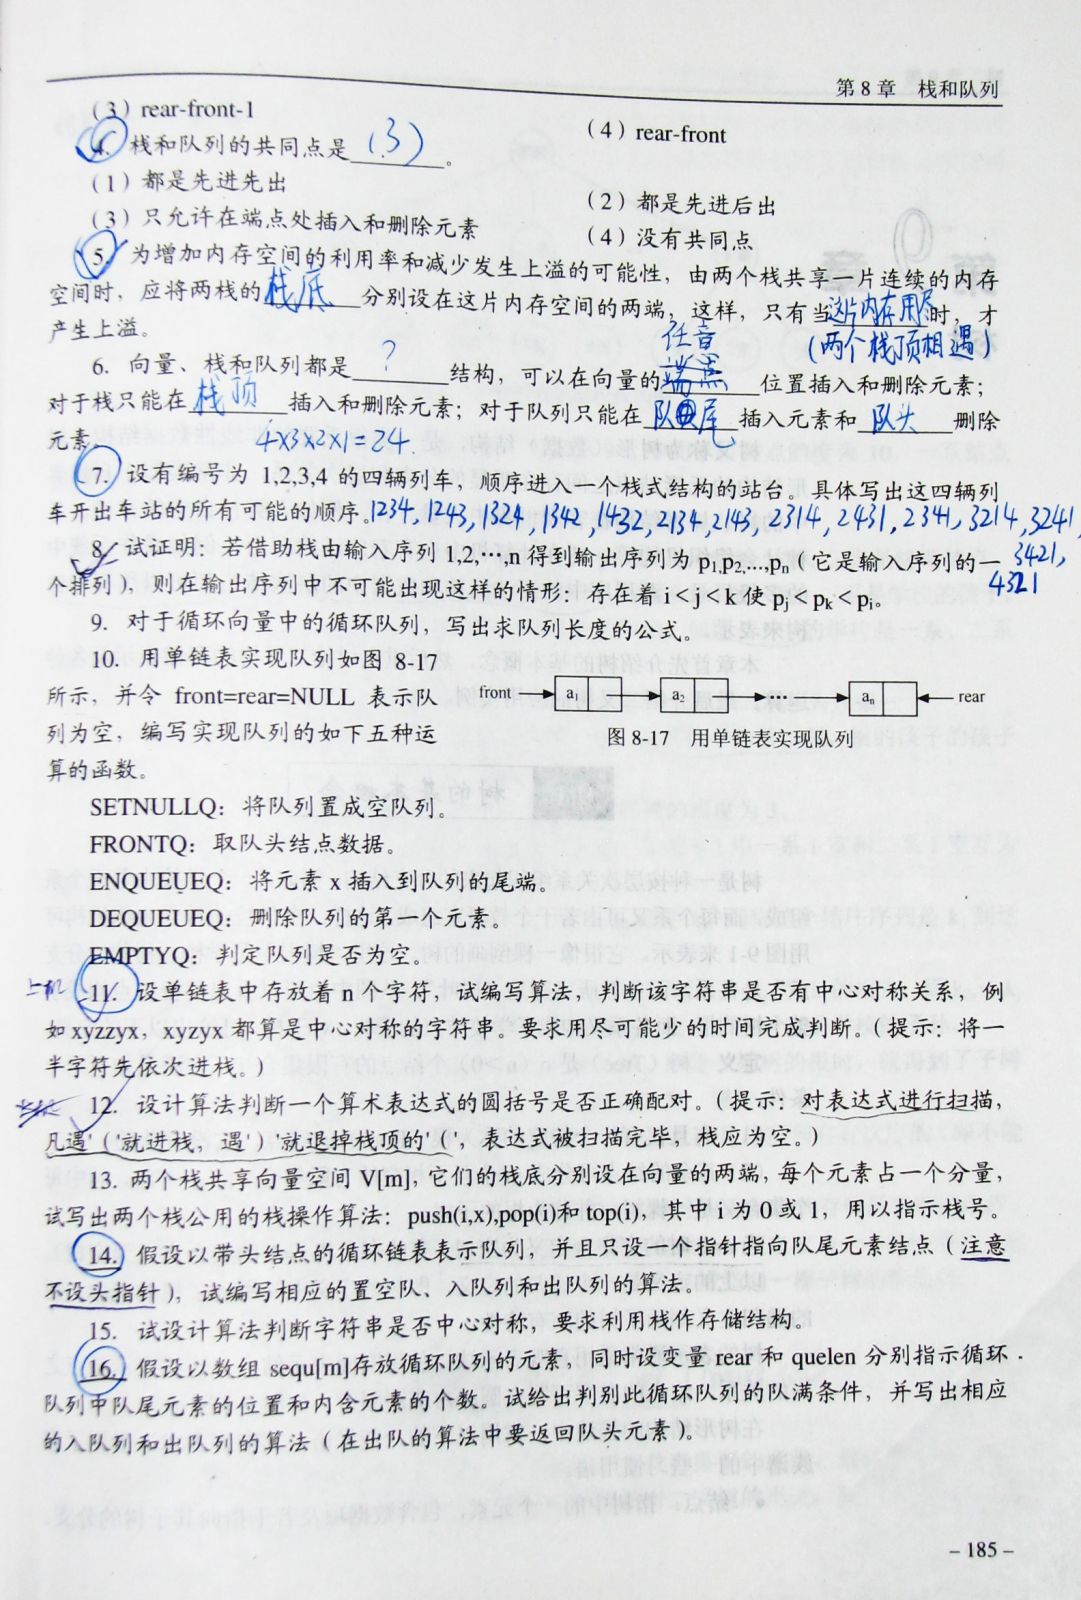 第 8 章　栈和队列
（3）rear-front-1
（4）rear-front
4. 栈和队列的共同点是 (3) 。
（1）都是先进先出
（2）都是先进后出
（3）只允许在端点处插入和删除元素
（4）没有共同点
5. 为增加内存空间的利用率和减少发生上溢的可能性，由两个栈共享一片连续的内存
空间时，应将两栈的 栈底 分别设在这片内存空间的两端，这样，只有当 这片内存用尽 时，才
产生上溢。
(两个栈顶相遇)
任意
6. 向量、栈和队列都是 ? 结构，可以在向量的 端点 位置插入和删除元素；
对于栈只能在 栈顶 插入和删除元素；对于队列只能在 队尾 插入元素和 队头 删除
元素。
4×3×2×1=24.
7. 设有编号为 1,2,3,4 的四辆列车，顺序进入一个栈式结构的站台。具体写出这四辆列
车开出车站的所有可能的顺序。1234, 1243, 1324, 1342, 1432, 2134, 2143, 2314, 2431, 2341, 3214, 3241
3421,
4321
8. 试证明：若借助栈由输入序列 1,2,…,n 得到输出序列为 p1,p2,...,pn（它是输入序列的一
个排列），则在输出序列中不可能出现这样的情形：存在着 i<j<k 使 pj<pk<pi。
9. 对于循环向量中的循环队列，写出求队列长度的公式。
10. 用单链表实现队列如图 8-17
所示，并令 front=rear=NULL 表示队
列为空，编写实现队列的如下五种运
算的函数。
front a1 a2 … an rear
图 8-17　用单链表实现队列
SETNULLQ：将队列置成空队列。
FRONTQ：取队头结点数据。
ENQUEUEQ：将元素 x 插入到队列的尾端。
DEQUEUEQ：删除队列的第一个元素。
EMPTYQ：判定队列是否为空。
上机
11. 设单链表中存放着 n 个字符，试编写算法，判断该字符串是否有中心对称关系，例
如 xyzzyx，xyzyx 都算是中心对称的字符串。要求用尽可能少的时间完成判断。（提示：将一
半字符先依次进栈。）
12. 设计算法判断一个算术表达式的圆括号是否正确配对。（提示：对表达式进行扫描，
凡遇'（'就进栈，遇'）'就退掉栈顶的'（'，表达式被扫描完毕，栈应为空。）
13. 两个栈共享向量空间 V[m]，它们的栈底分别设在向量的两端，每个元素占一个分量，
试写出两个栈公用的栈操作算法：push(i,x),pop(i)和 top(i)，其中 i 为 0 或 1，用以指示栈号。
14. 假设以带头结点的循环链表表示队列，并且只设一个指针指向队尾元素结点（注意
不设头指针），试编写相应的置空队、入队列和出队列的算法。
15. 试设计算法判断字符串是否中心对称，要求利用栈作存储结构。
16. 假设以数组 sequ[m]存放循环队列的元素，同时设变量 rear 和 quelen 分别指示循环
队列中队尾元素的位置和内含元素的个数。试给出判别此循环队列的队满条件，并写出相应
的入队列和出队列的算法（在出队的算法中要返回队头元素）。
– 185 –